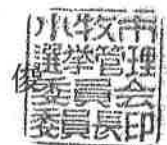 小牧市
選挙管理
委員会
委員長印
俊